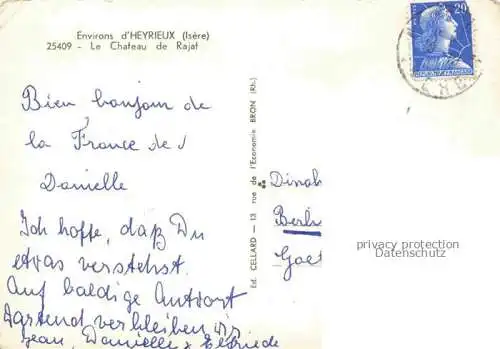 Environs d'HEYRIEUX (Isère)
25409 - Le Chateau de Rajat
Bien bonjour de
la France de
Danielle
Ich hoffe, daß Du
etwas verstehst.
Auf baldige Antwort
wartend verbleiben wir
Jean, Danielle & Elfriede
Ed. CELLARD — 13 rue de l'Economie BRON (Rh.)
20
POSTES
REPUBLIQUE FRANÇAISE
Dinah
Berli
Goe
privacy protection
Datenschutz